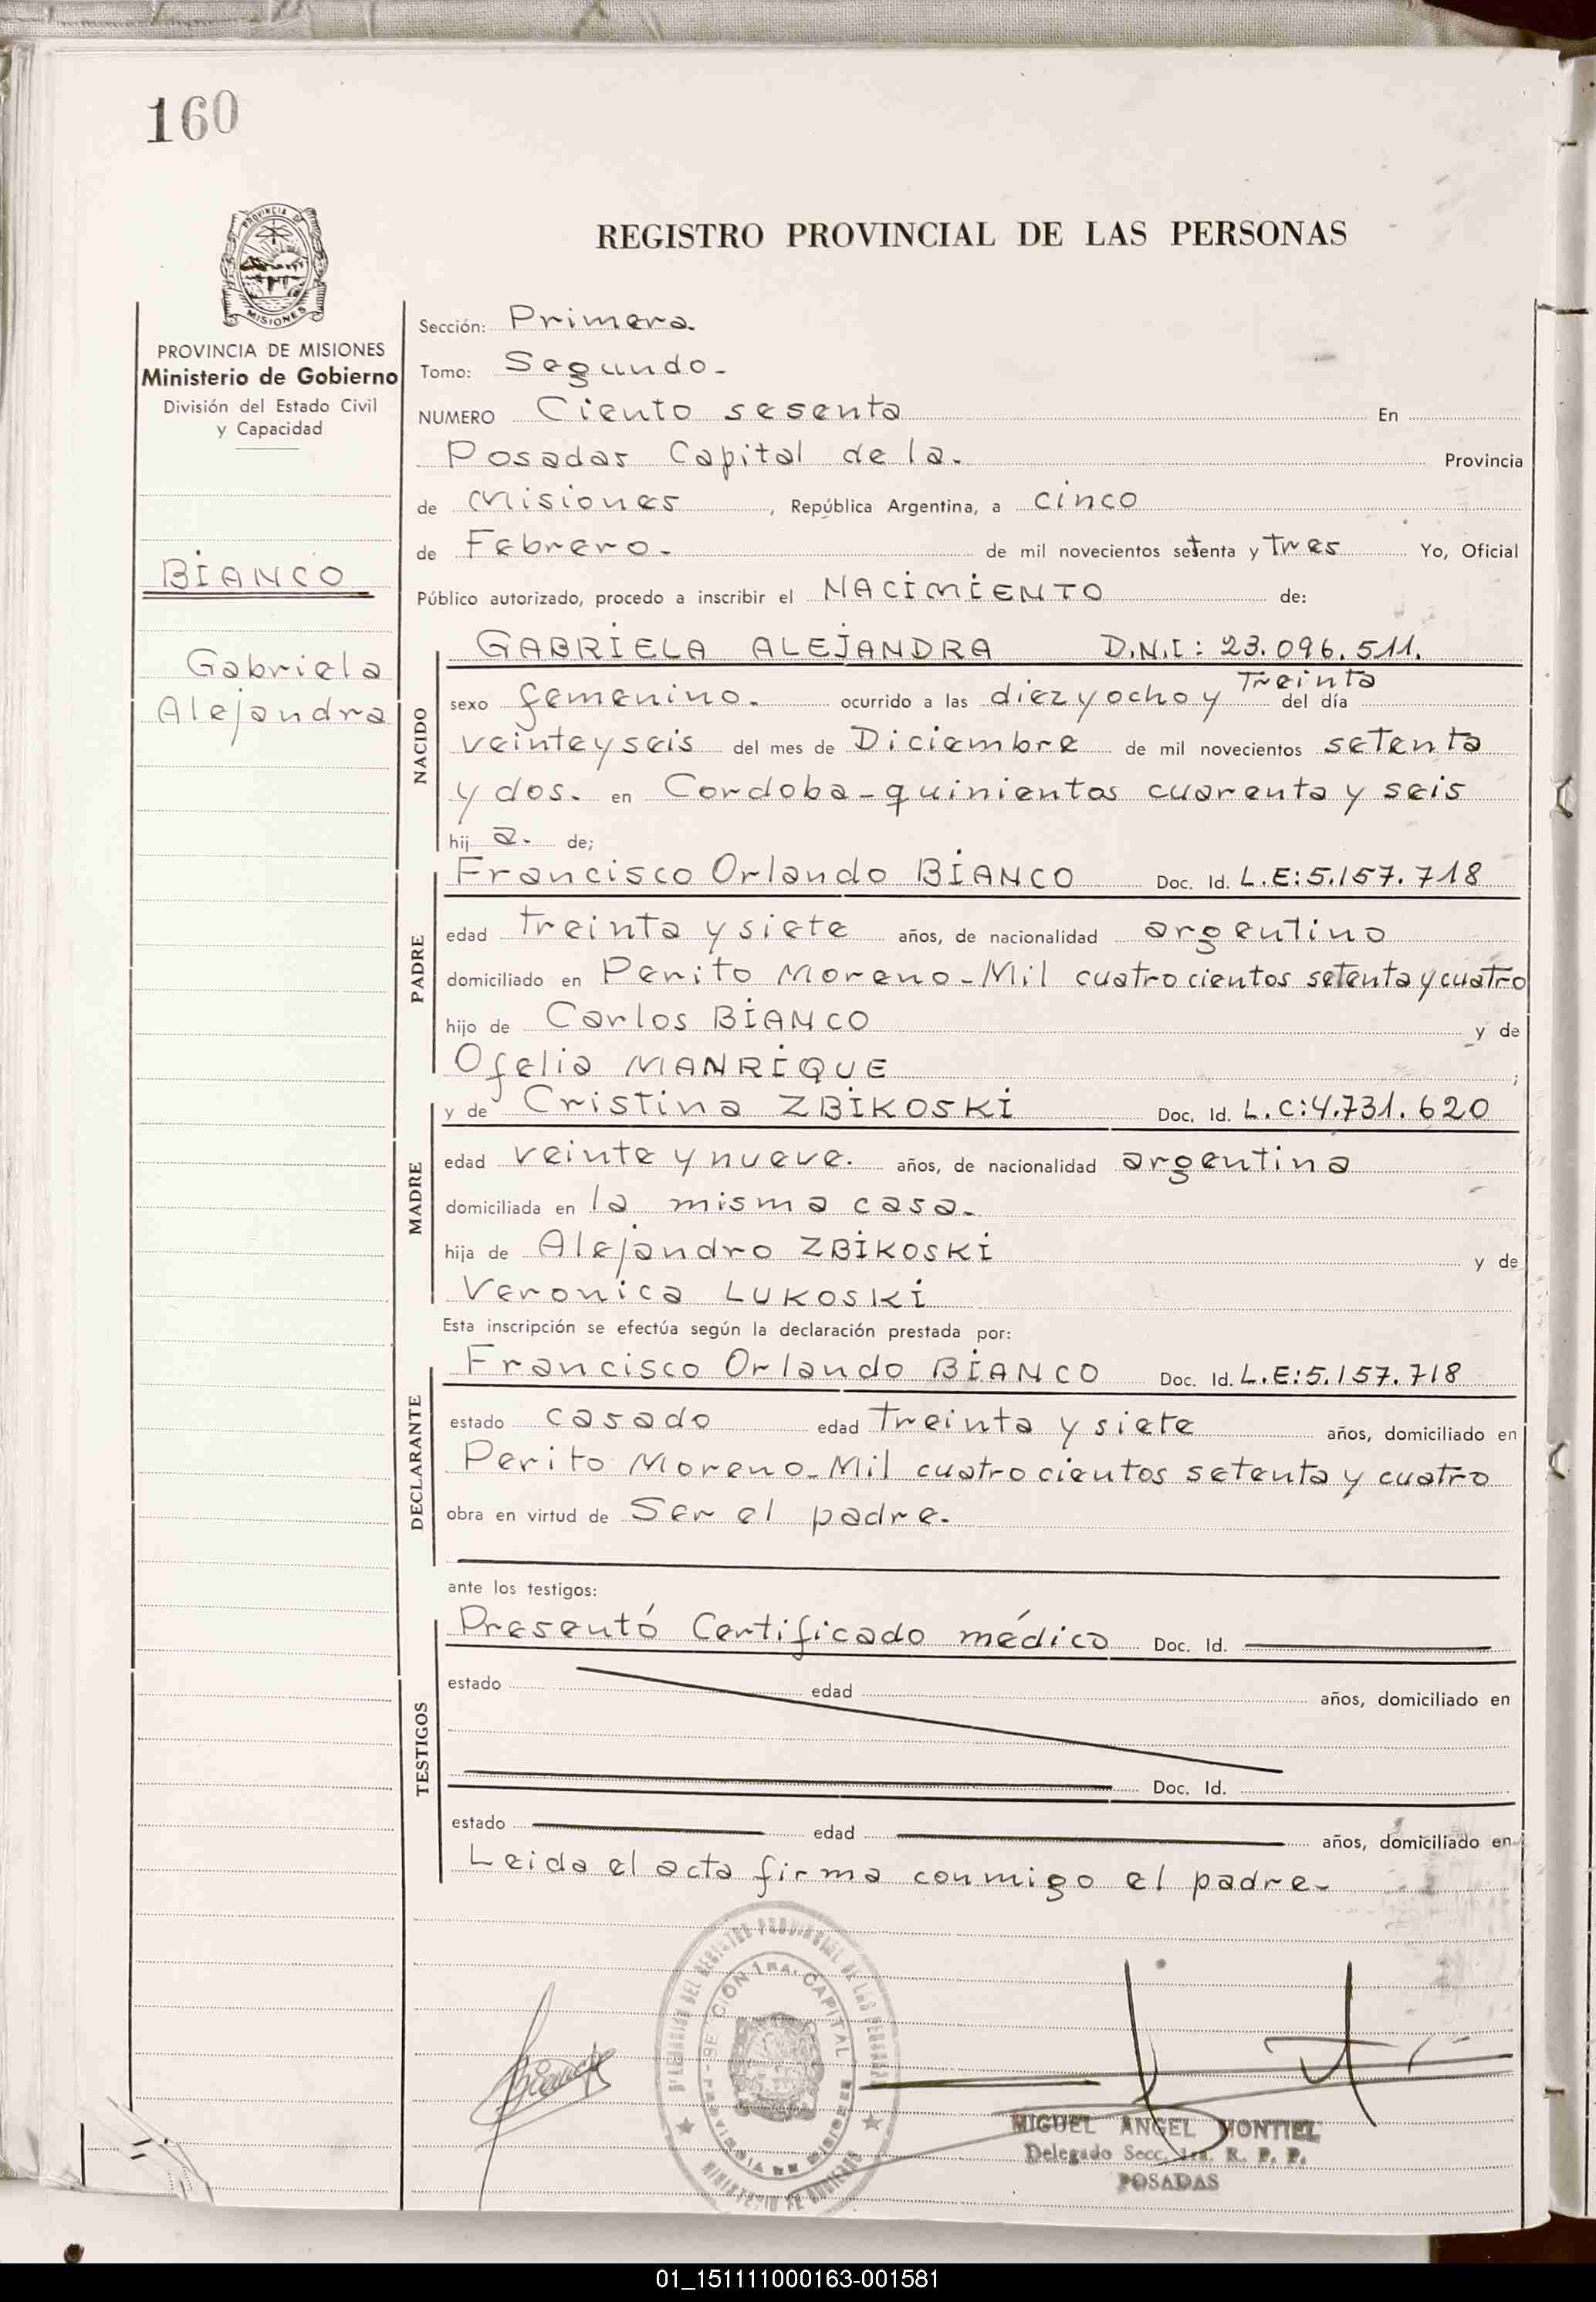 160
PROVINCIA DE
MISIONES
REGISTRO PROVINCIAL DE LAS PERSONAS
PROVINCIA DE MISIONES
Ministerio de Gobierno
División del Estado Civil
y Capacidad
BIANCO
Gabriela
Alejandra
Sección: Primera.
Tomo: Segundo.
NUMERO Ciento sesenta En
Posadas Capital de la. Provincia
de Misiones, República Argentina, a cinco
de Febrero. de mil novecientos setenta y Tres Yo, Oficial
Público autorizado, procedo a inscribir el NACIMIENTO de:
NACIDO
GABRIELA ALEJANDRA D.N.I: 23.096.511.
sexo femenino. ocurrido a las diez y ocho y Treinta del día
veinte y seis del mes de Diciembre de mil novecientos setenta
y dos. en Cordoba-quinientos cuarenta y seis
hij a. de;
PADRE
Francisco Orlando BIANCO Doc. Id. L.E:5.157.718
edad treinta y siete años, de nacionalidad argentino
domiciliado en Perito Moreno-Mil cuatrocientos setenta y cuatro
hijo de Carlos BIANCO y de
Ofelia MANRIQUE ;
MADRE
y de Cristina ZBIKOSKI Doc. Id. L.C:4.731.620
edad veinte y nueve. años, de nacionalidad argentina
domiciliada en la misma casa.
hija de Alejandro ZBIKOSKI y de
Veronica LUKOSKI
Esta inscripción se efectúa según la declaración prestada por:
DECLARANTE
Francisco Orlando BIANCO Doc. Id. L.E:5.157.718
estado casado edad Treinta y siete años, domiciliado en
Perito Moreno-Mil cuatrocientos setenta y cuatro
obra en virtud de Ser el padre.
ante los testigos:
TESTIGOS
Presentó Certificado médico Doc. Id.
estado edad años, domiciliado en
Doc. Id.
estado edad años, domiciliado en
Leida el acta firma conmigo el padre.
DEL REGISTRO PROVINCIAL DE LAS PERSONAS
SECCION 1RA. CAPITAL
PROVINCIA DE MISIONES
MINISTERIO DE GOBIERNO
Bianco
MIGUEL ANGEL MONTIEL
Delegado Secc. 1ra. R. P. P.
POSADAS
01_151111000163-001581